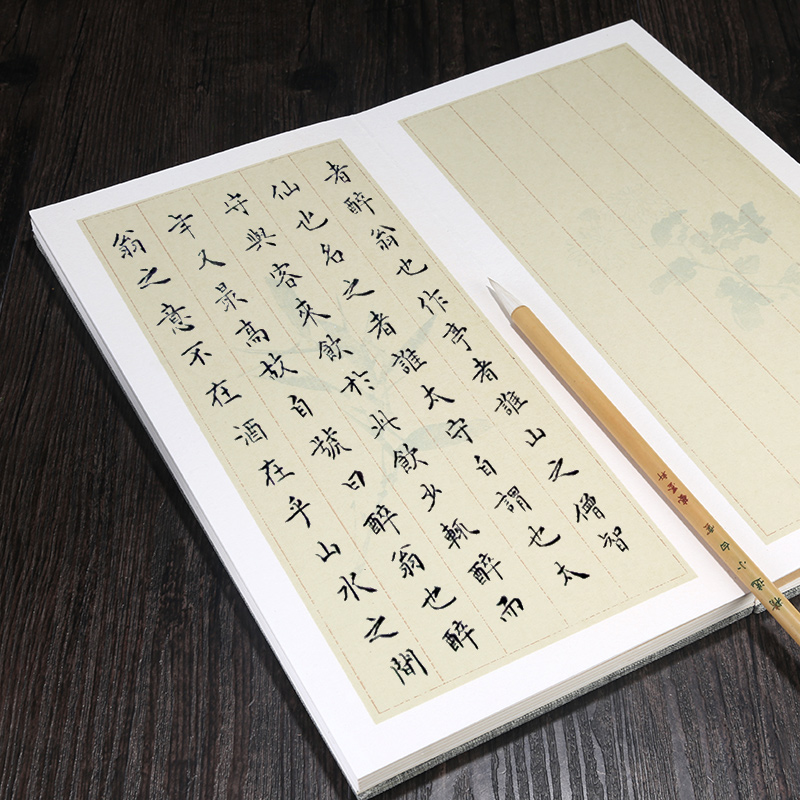 者醉翁也作亭者誰山之僧智
仙也名之者誰太守自謂也太
守與客來飲於此飲少輒醉而
年又最高故自號曰醉翁也醉
翁之意不在酒在乎山水之間
精選小白雲